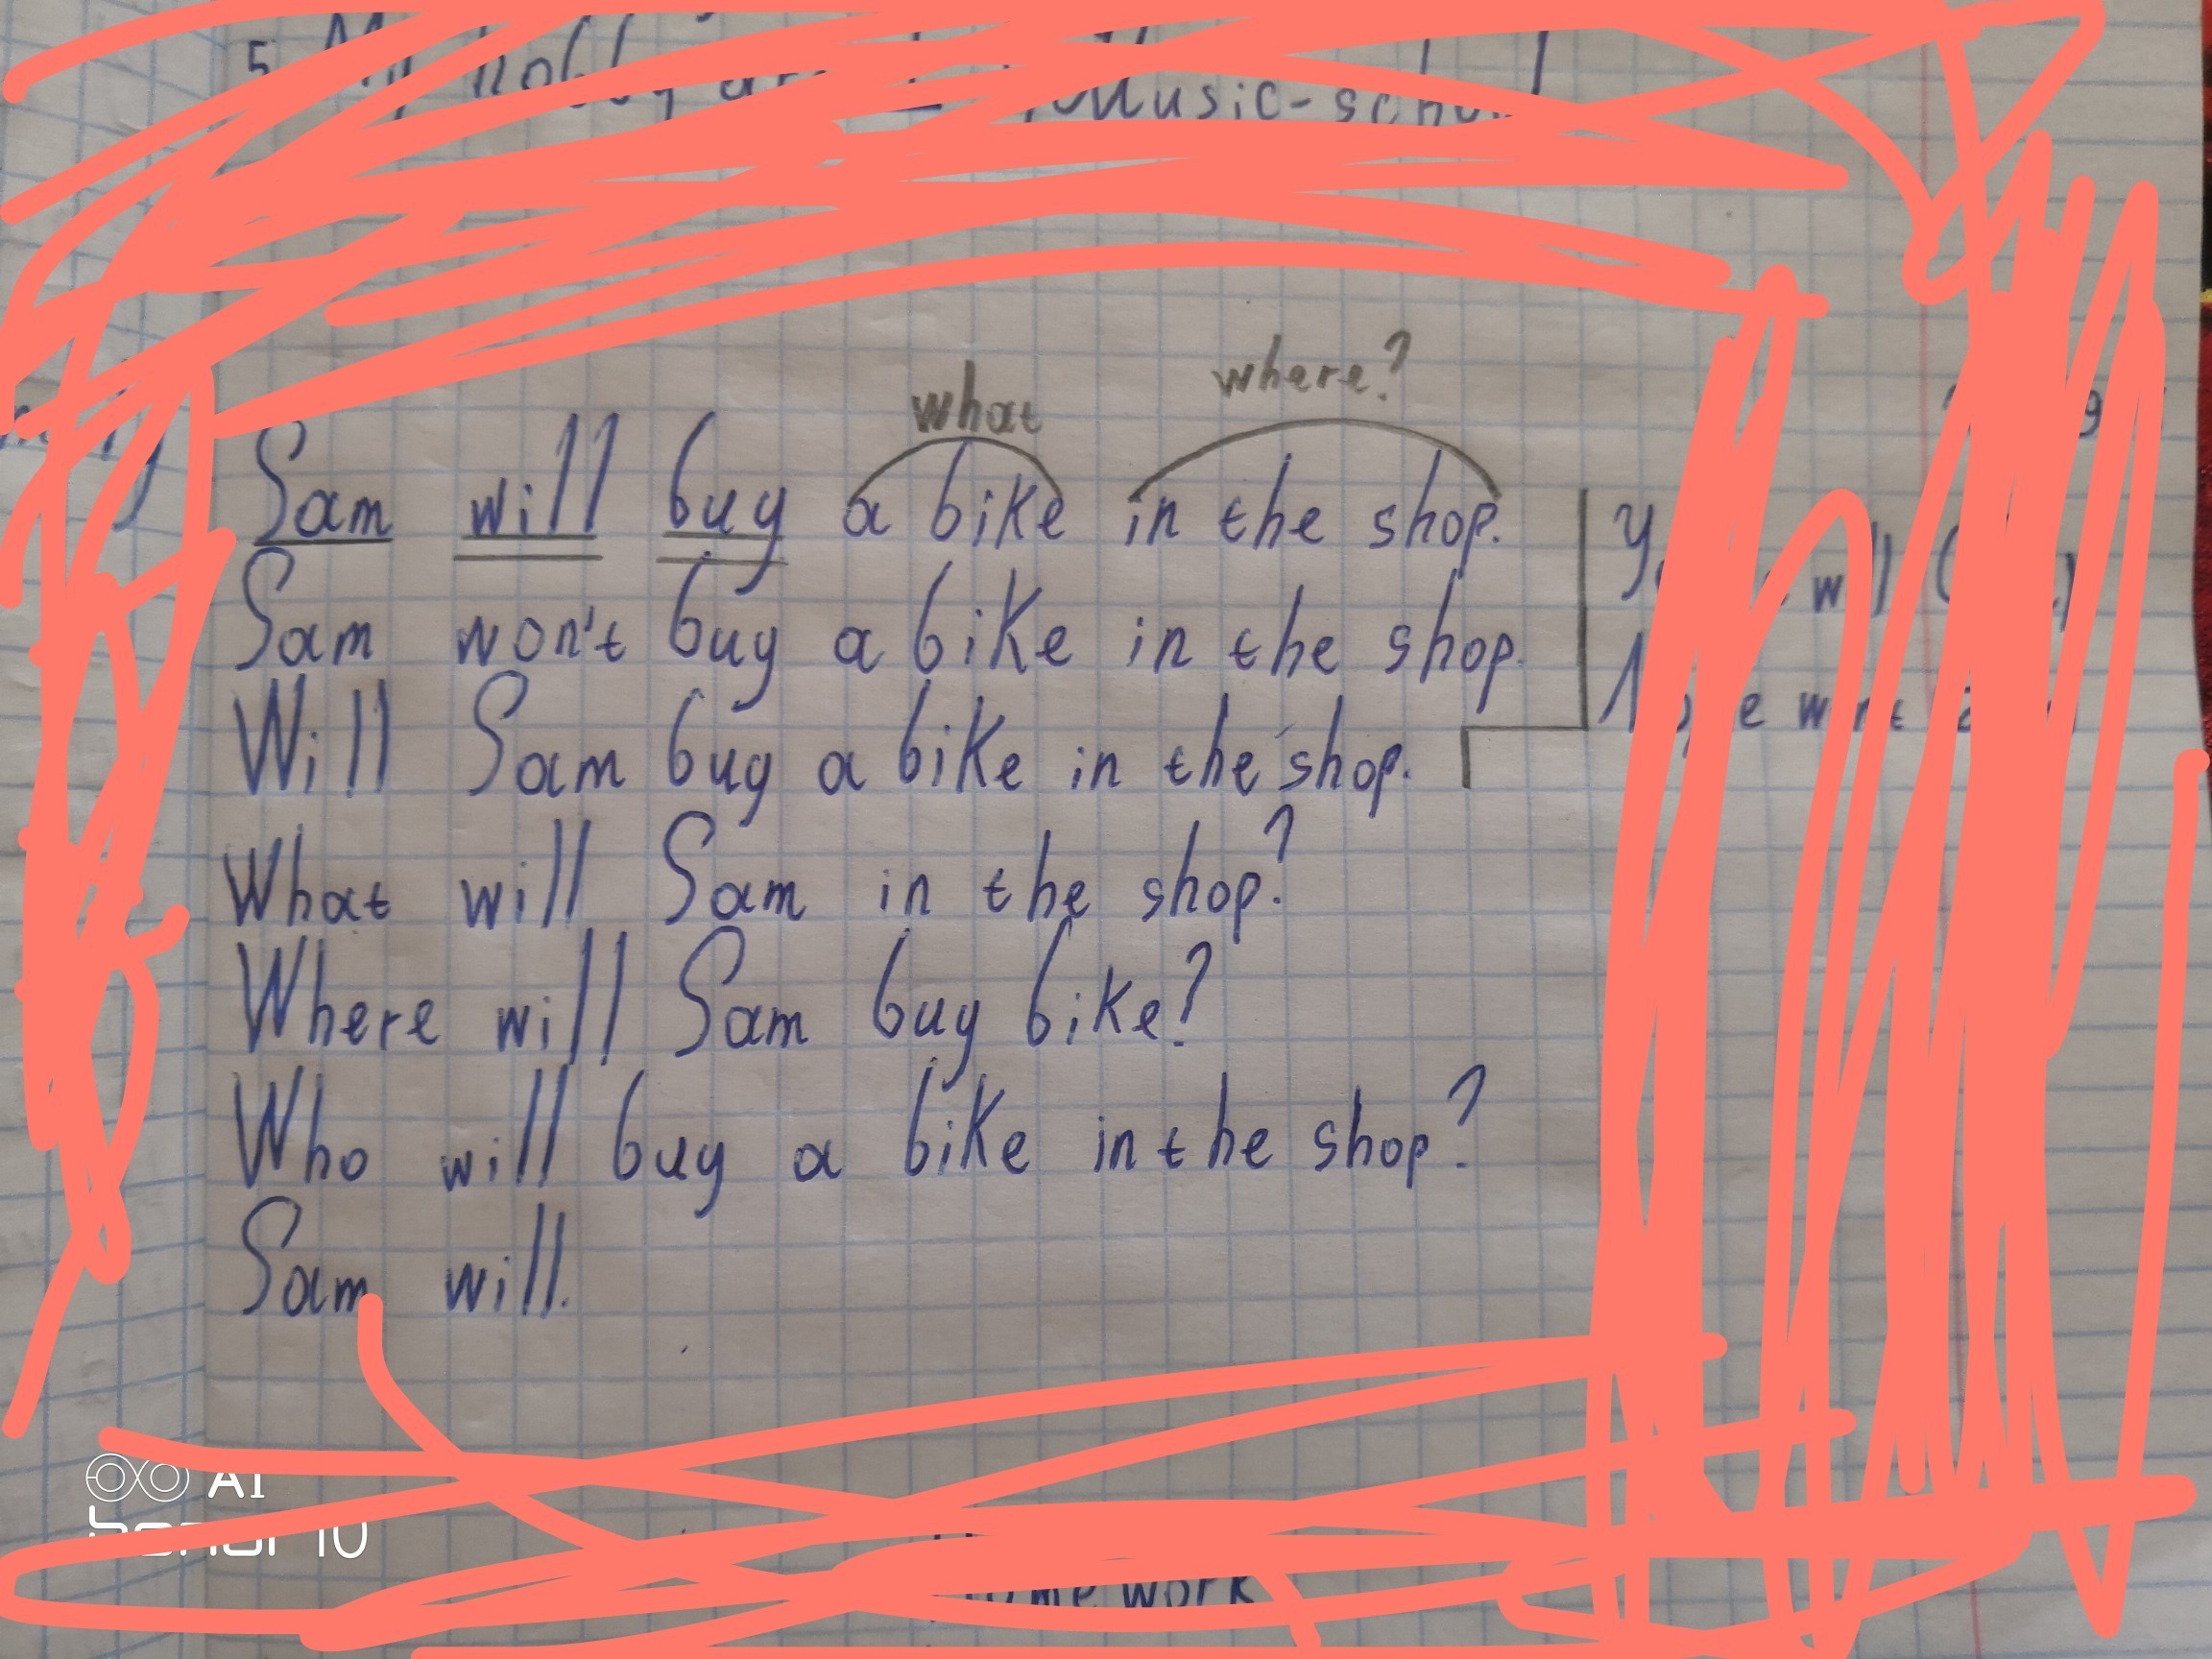 5. My hobby Music-school
what where?
Sam will buy a bike in the shop.
Sam won't buy a bike in the shop.
Will Sam buy a bike in the shop.
What will Sam in the shop?
Where will Sam buy bike?
Who will buy a bike in the shop?
Sam will.
AI
honor 10
work